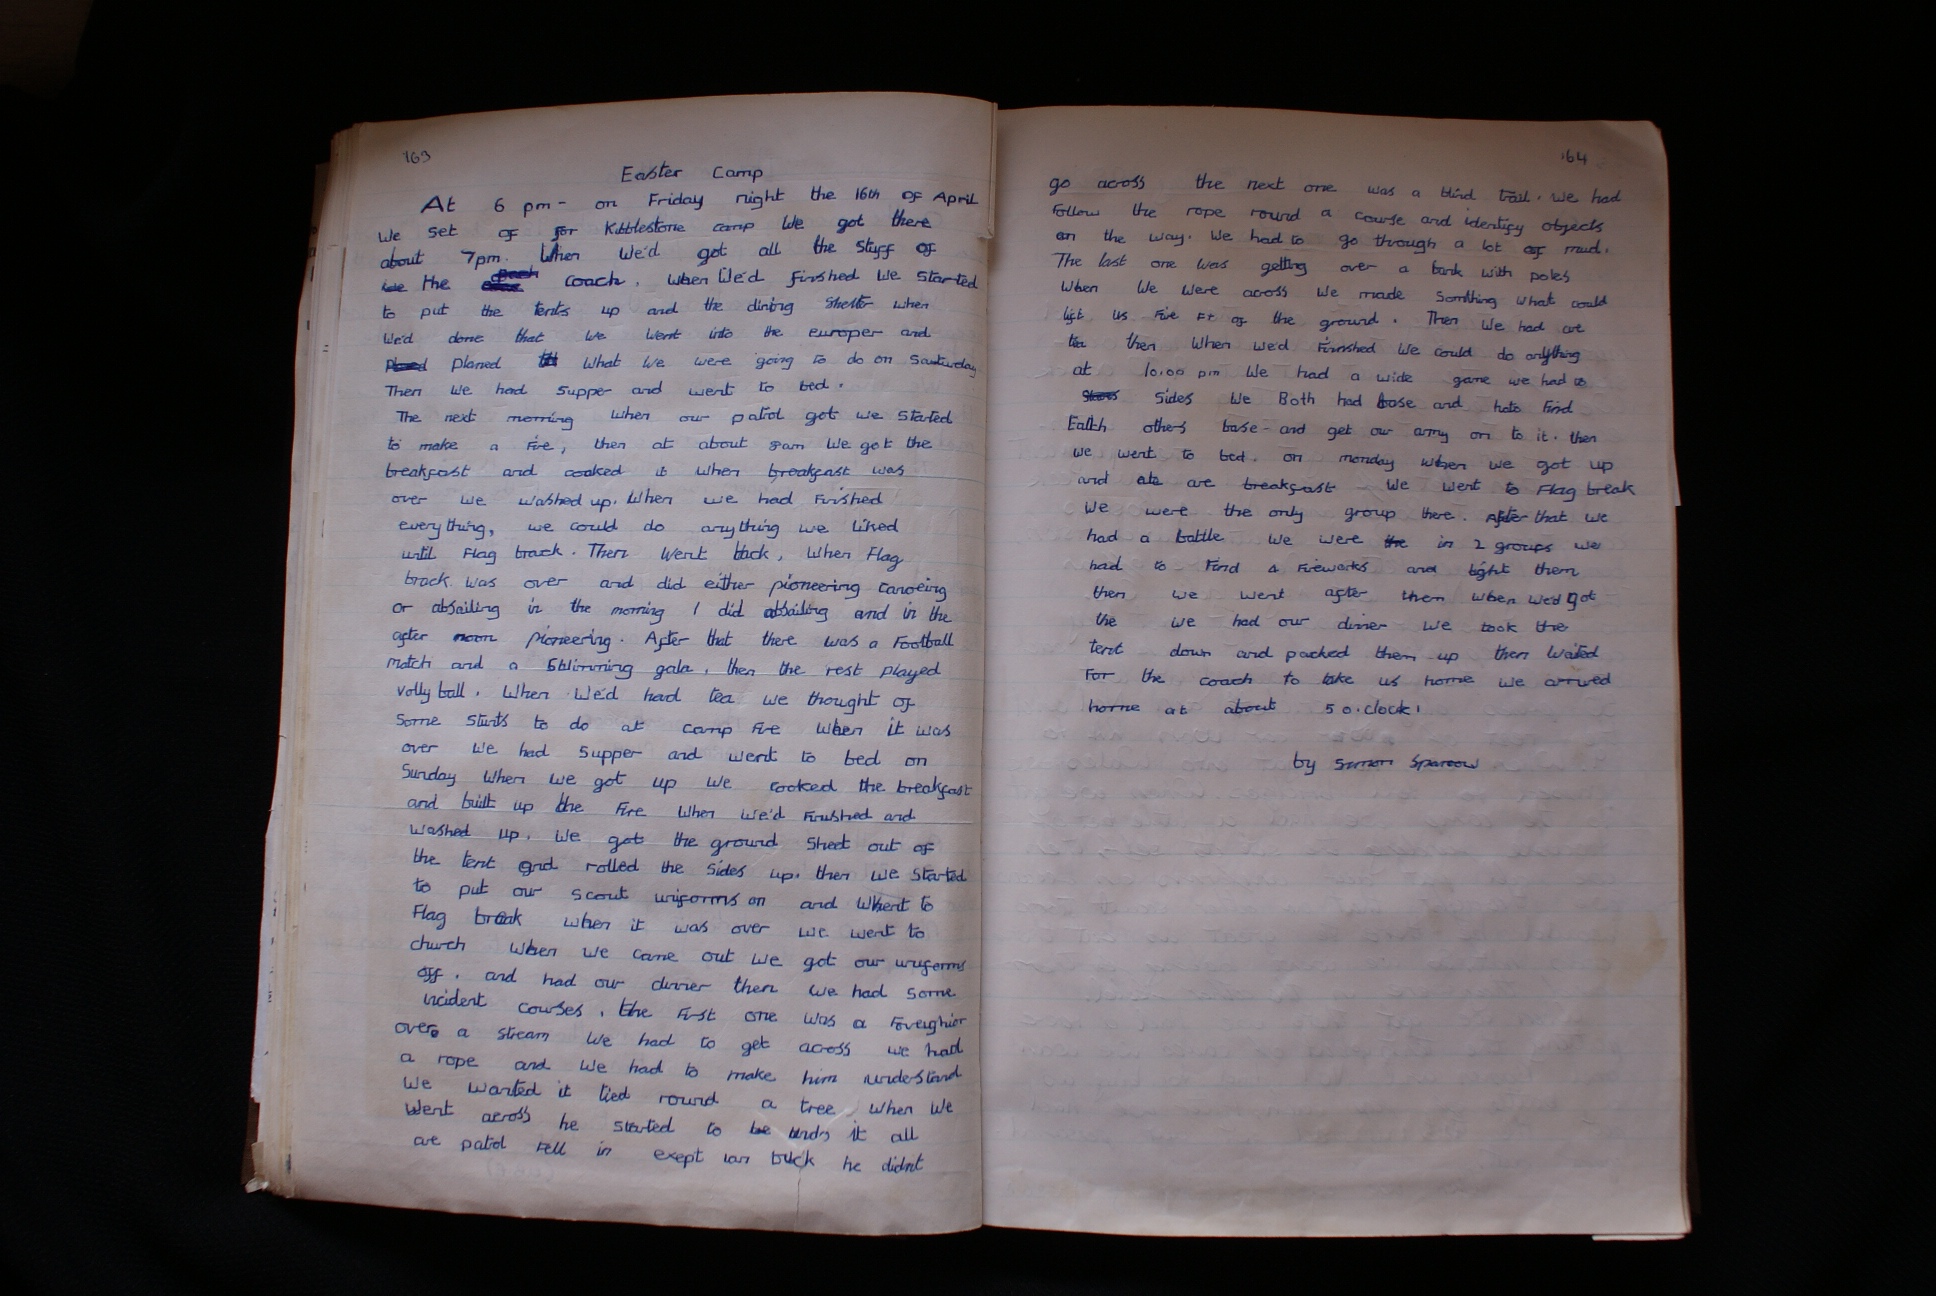 163
Easter Camp
At 6 pm - on Friday night the 16th of April
we set of for Kibblestone camp We got there
about 7pm. When We'd got all the stuff of
the coach, when We'd finished We started
to put the tents up and the dining Shelter when
We'd done that We Went into the europer and
planed What We were going to do on Saturday
Then We had Supper and went to bed.
The next morning when our patrol got we started
to make a Fire, then at about 8am We got the
breakfast and cooked it When breakfast was
over we washed up. When we had Finished
everything, we could do anything we liked
until Flag brack. Then Went back, When Flag
brack was over and did either pioneering canoeing
or absailing in the morning I did absailing and in the
after noon pioneering. After that there was a Football
match and a Swimming gala, then the rest played
volly ball. When We'd had tea we thought of
Some stunts to do at camp Fire When it was
over We had Supper and went to bed on
Sunday When we got up we cooked the breakfast
and built up the Fire When We'd Finished and
Washed up. We got the ground Sheet out of
the tent and rolled the Sides up. then we Started
to put our Scout uniforms on and Whent to
Flag break when it was over we went to
church When we came out We got our uniforms
off. and had our dinner then We had Some
incident courses, the First one Was a Foreighior
over a stream We had to get across we had
a rope and We had to make him understand
We wanted it tied round a tree When We
Went across he started to undo it all
are patrol Fell in exept ian buck he didnt
164
go across the next one was a blind trail. We had
Follow the rope round a course and identify objects
on the way. We had to go through a lot of mud.
The last one was getting over a bank with poles
When We Were across We made Somthing What could
lift us Five Ft of the ground. Then We had are
tea then When we'd Finnished We could do anything
at 10.00 pm We had a wide game we had to
Sides We Both had base and hato Find
Eatch others base - and get our army on to it. then
we went to bed. on monday when we got up
and ate are breakfast We Went to Flag break
We were the only group there. After that we
had a battle We were in 2 groups we
had to Find 4 Fireworks and light them
then we went after them when we'd got
the we had our dinner We took the
tent down and packed them up then Waited
For the coach to take us home we arrived
home at about 5 o.clock.
by Simon Sparrow